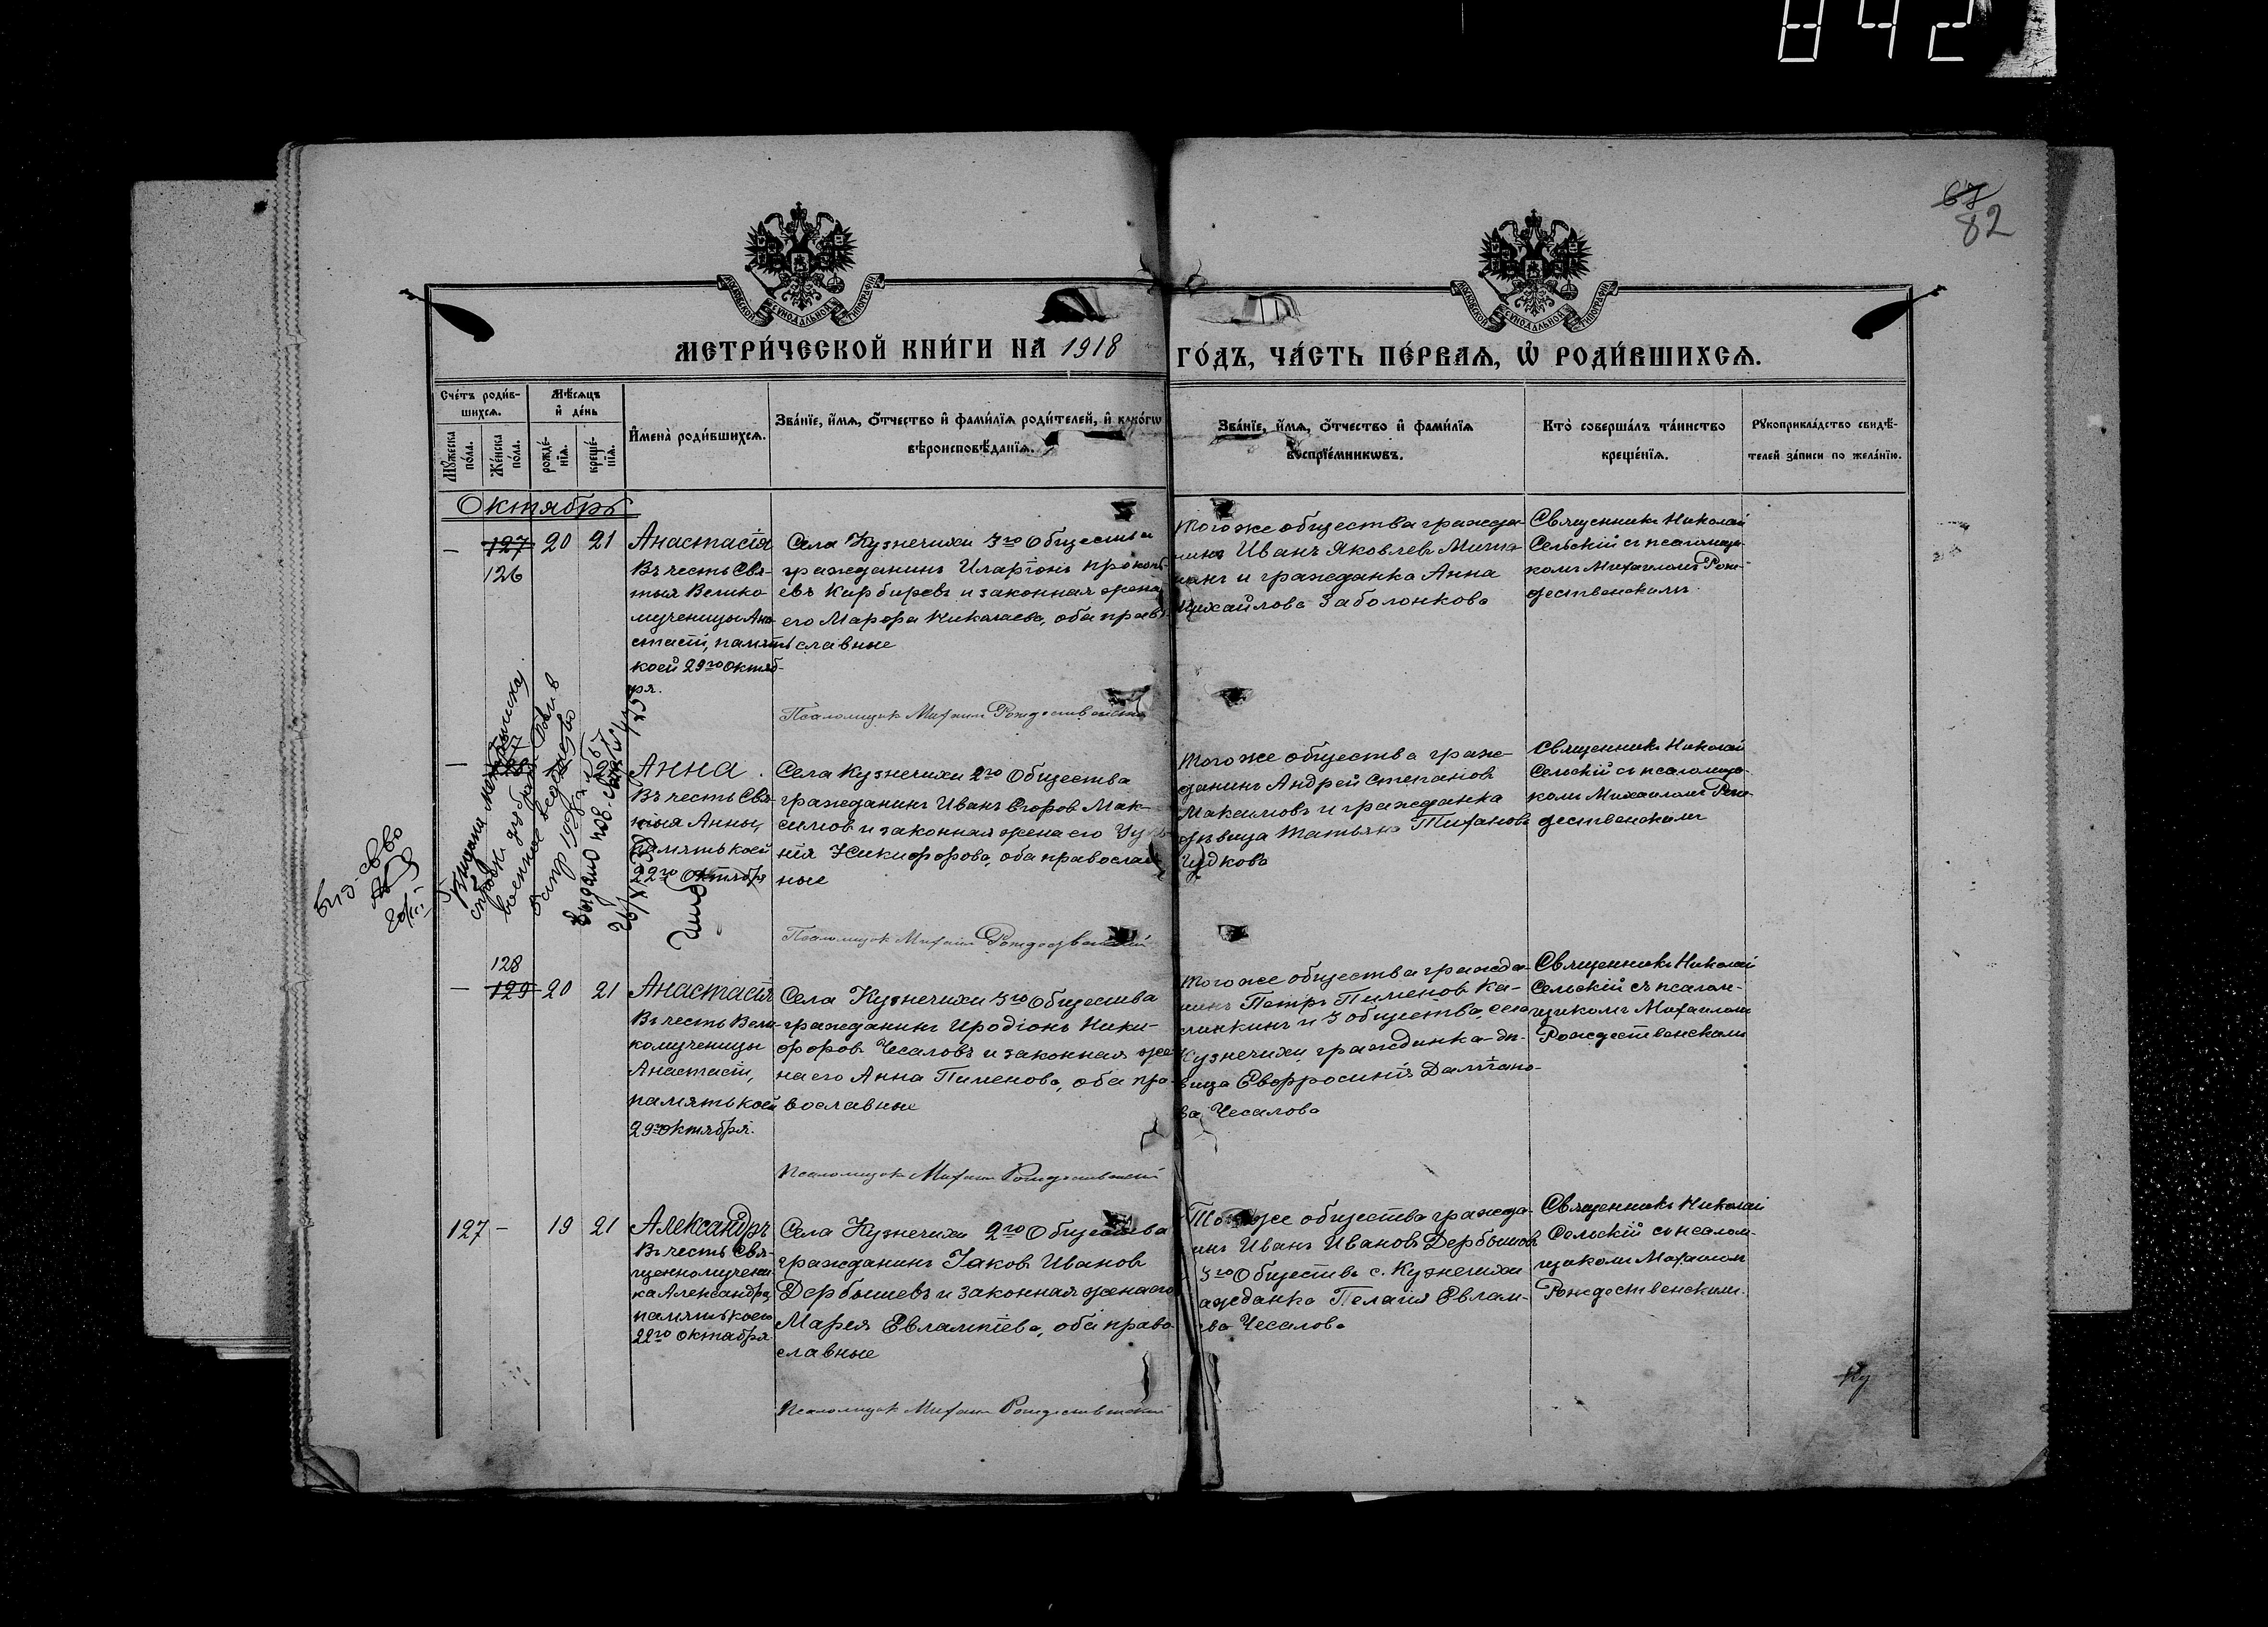 842
67
82
МОСКОВСКОЙ СѴНОДАЛЬНОЙ ТИПОГРАФІИ
МОСКОВСКОЙ СѴНОДАЛЬНОЙ ТИПОГРАФІИ
МЕТРИ́ЧЕСКОЙ КНИ́ГИ НА 1918 ГО́ДЪ, ЧА́СТЬ ПЕ́РВАѦ, Ѡ҆ РОДИ́ВШИХСѦ.
Сче́тъ роди́в-
шихсѧ.
Мѣ́сѧцъ
и҆ де́нь
Мꙋ́жеска
по́ла.
Же́нска
по́ла.
рожде́-
нїѧ.
креще́-
нїѧ.
И҆мена̀ роди́вшихсѧ.
Зва́нїе, и҆́мѧ, ѻ҆́тчество и҆ фами́лїѧ роди́телей, и҆ како́гѡ
вѣроисповѣ́данїѧ.
Зва́нїе, и҆́мѧ, ѻ҆́тчество и҆ фами́лїѧ
воспрїе́мникѡвъ.
Кто̀ соверша́лъ та́инство
креще́нїѧ.
Рꙋкоприкла́дство свидѣ́-
телей за́писи по жела́нїю.
Октябрь
– 127 20 21
126
Анастасія
Въ честь Свя-
тыя Велико
мученицы Ана-
стасіи, память
коей 29го октяб-
ря.
Села Кузнечихи 3го Общества
гражданинъ Иларіонъ Прокопь-
евъ Кирбиревъ и законная жена
его Марфа Николаева, оба право
славные
Псаломщик Михаил Рождественский
Того же общества гражда-
нинъ Иванъ Яковлев
и гражданка Анна
Михайлова Заболонкова
Священникъ Николай
Сельскій съ псаломщи-
комъ Михаиломъ Рож-
дественскимъ
–
Анна.
Въ честь Свя-
тыя Анны,
память коей
22го Октября
Села Кузнечихи 2го Общества
гражданинъ Иванъ Егоров Мак-
симов и законная жена его
нія Никифорова, оба православ-
ные
Псаломщик Михаил Рождественский
Того же общества граж-
данинъ Андрей Степанов
Максимовъ и гражданка
дѣвица Татьяна Тифанова
Гудкова
Священникъ Николай
Сельскій съ псаломщи-
комъ Михаиломъ Рож-
дественскимъ
128
– 129 20 21
Анастасія
Въ честь Вели-
комученицы
Анастасіи,
память коей
29го октября.
Села Кузнечихи 3го Общества
гражданинъ Иродіонъ Ники-
форовъ Чесаловъ и законная же-
на его Анна Пименова, оба пра-
вославные
Псаломщик Михаил Рождественский
Того же общества гражда-
нинъ Петръ Пименов Ка-
линкинъ и 3 общества села
Кузнечихи гражданка дѣ-
вица Евфросинія Даміано-
ва Чесалова
Священникъ Николай
Сельскій съ псалом-
щикомъ Михаиломъ
Рождественскимъ
127 – 19 21
Александръ
Въ честь Свя-
щенномучени-
ка Александра,
память коего
22го октября
Села Кузнечихи 2го Общества
гражданинъ Іаковъ Иванов
Дербышевъ и законная жена его
Марѳа Евлампіева, оба право-
славные
Псаломщик Михаил Рождественский
Того же общества гражда-
инъ Иванъ Иванов Дербышов
3го Общества с. Кузнечихи
ажданка Пелагія Евлам-
ева Чесалова
Священникъ Николай
Сельскій съ псалом-
щикомъ Михаиломъ
Рождественскимъ.